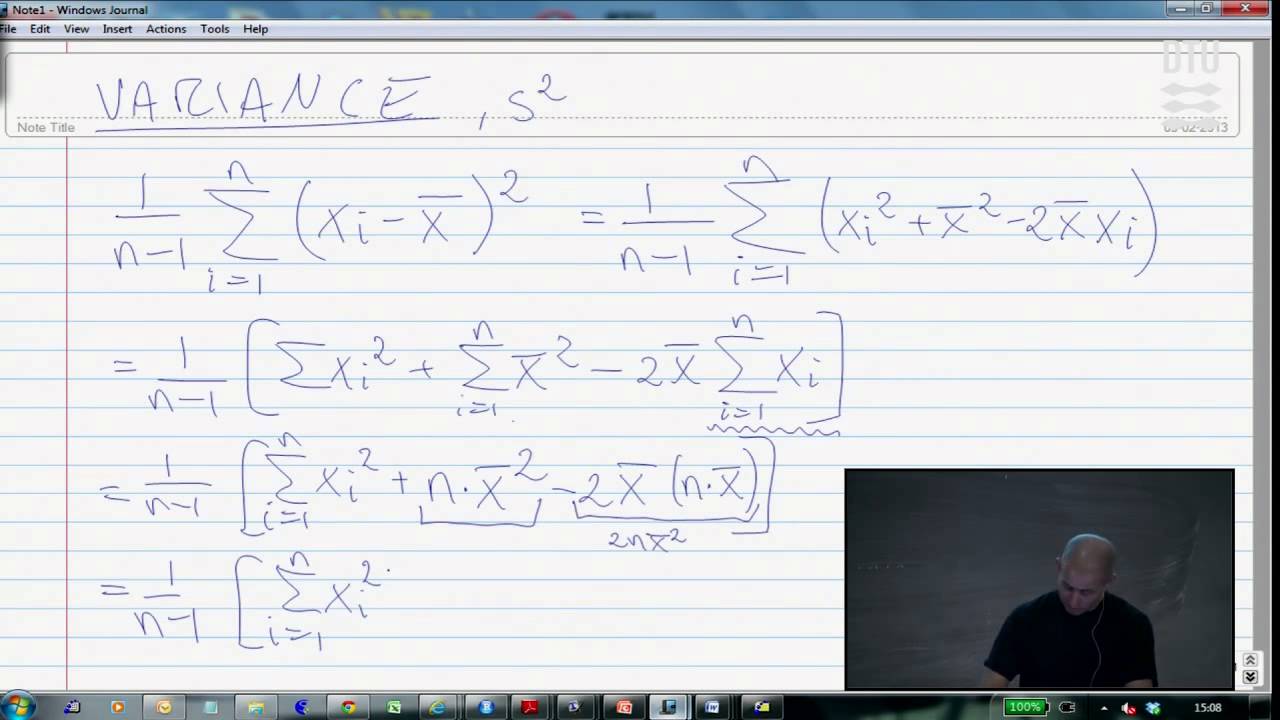 Note1 - Windows Journal
File Edit View Insert Actions Tools Help
DTU
VARIANCE, s²
Note Title
1/(n-1) Σ_{i=1}^{n} (xi - x̄)² = 1/(n-1) Σ_{i=1}^{n} (xi² + x̄² - 2x̄xi)
= 1/(n-1) [Σxi² + Σ_{i=1}^{n} x̄² - 2x̄ Σ_{i=1}^{n} xi]
= 1/(n-1) [Σ_{i=1}^{n} xi² + n·x̄² - 2x̄(n·x̄)]
2nx̄²
= 1/(n-1) [Σ_{i=1}^{n} xi²
100%
15:08